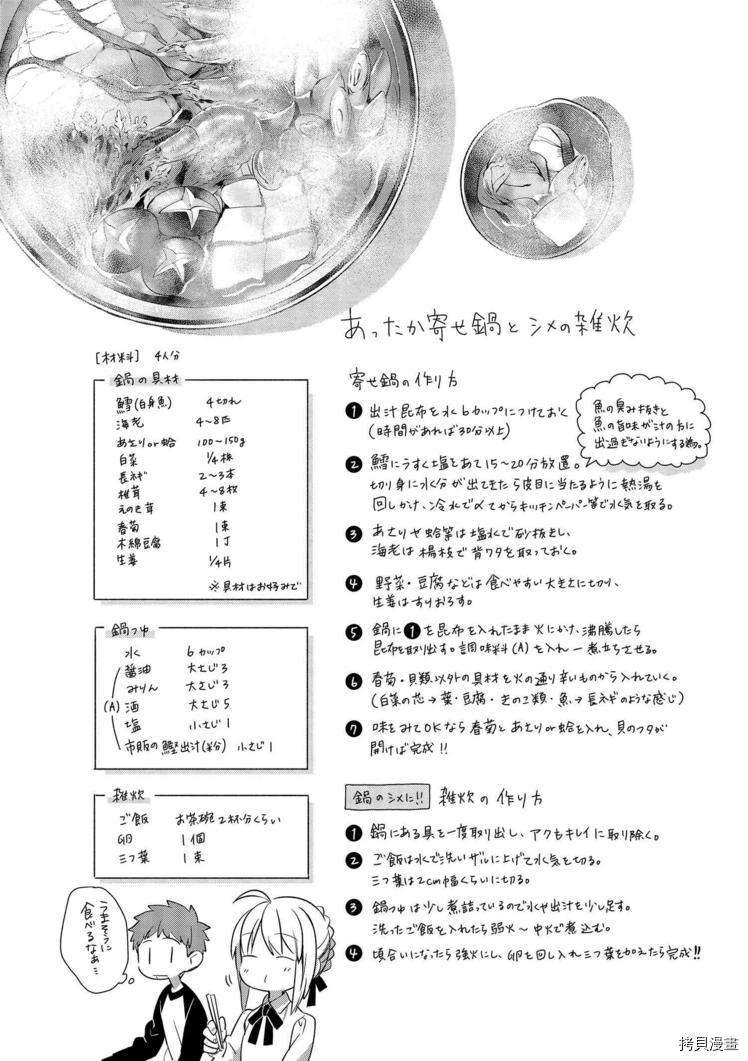 あったか寄せ鍋とシメの雑炊
[材料] 4人分
鍋の具材
鱈(白身魚) 4切れ
海老 4~8匹
あさりor蛤 100~150g
白菜 1/4株
長ネギ 2~3本
椎茸 4~8枚
えのき茸 1束
春菊 1束
木綿豆腐 1丁
生姜 1/4片
※具材はお好みで
鍋つゆ
水 6カップ
醤油 大さじ3
みりん 大さじ3
(A) 酒 大さじ5
塩 小さじ1
市販の鰹出汁(粉) 小さじ1
雑炊
ご飯 お茶碗2杯分くらい
卵 1個
三つ葉 1束
うまそうに
食べるなぁ…
寄せ鍋の作り方
❶ 出汁昆布を水6カップにつけておく
(時間があれば30分以上)
❷ 鱈にうすく塩をあて15~20分放置。
切り身に水分が出てきたら皮目に当たるように熱湯を
回しかけ、冷水で〆てからキッチンペーパー等で水気を取る。
魚の臭み抜きと
魚の旨味が汁の方に
出過ぎないようにする為。
❸ あさりや蛤等は塩水で砂抜きし、
海老は楊枝で背ワタを取っておく。
❹ 野菜・豆腐などは食べやすい大きさに切り、
生姜はすりおろす。
❺ 鍋に❶を昆布を入れたまま火にかけ、沸騰したら
昆布を取り出す。調味料(A)を入れ一煮立ちさせる。
❻ 春菊・貝類以外の具材を火の通り辛いものから入れていく。
(白菜の芯→葉・豆腐・きのこ類・魚→長ネギのような感じ)
❼ 味をみてOKなら春菊とあさりor蛤を入れ、貝のフタが
開けば完成!!
鍋のシメに!! 雑炊の作り方
❶ 鍋にある具を一度取り出し、アクもキレイに取り除く。
❷ ご飯は水で洗いザルに上げて水気を切る。
三つ葉は2cm幅くらいに切る。
❸ 鍋つゆは少し煮詰っているので水や出汁を少し足す。
洗ったご飯を入れたら弱火~中火で煮込む。
❹ 頃合いになったら強火にし、卵を回し入れ三つ葉を加えたら完成!!
拷貝漫畫